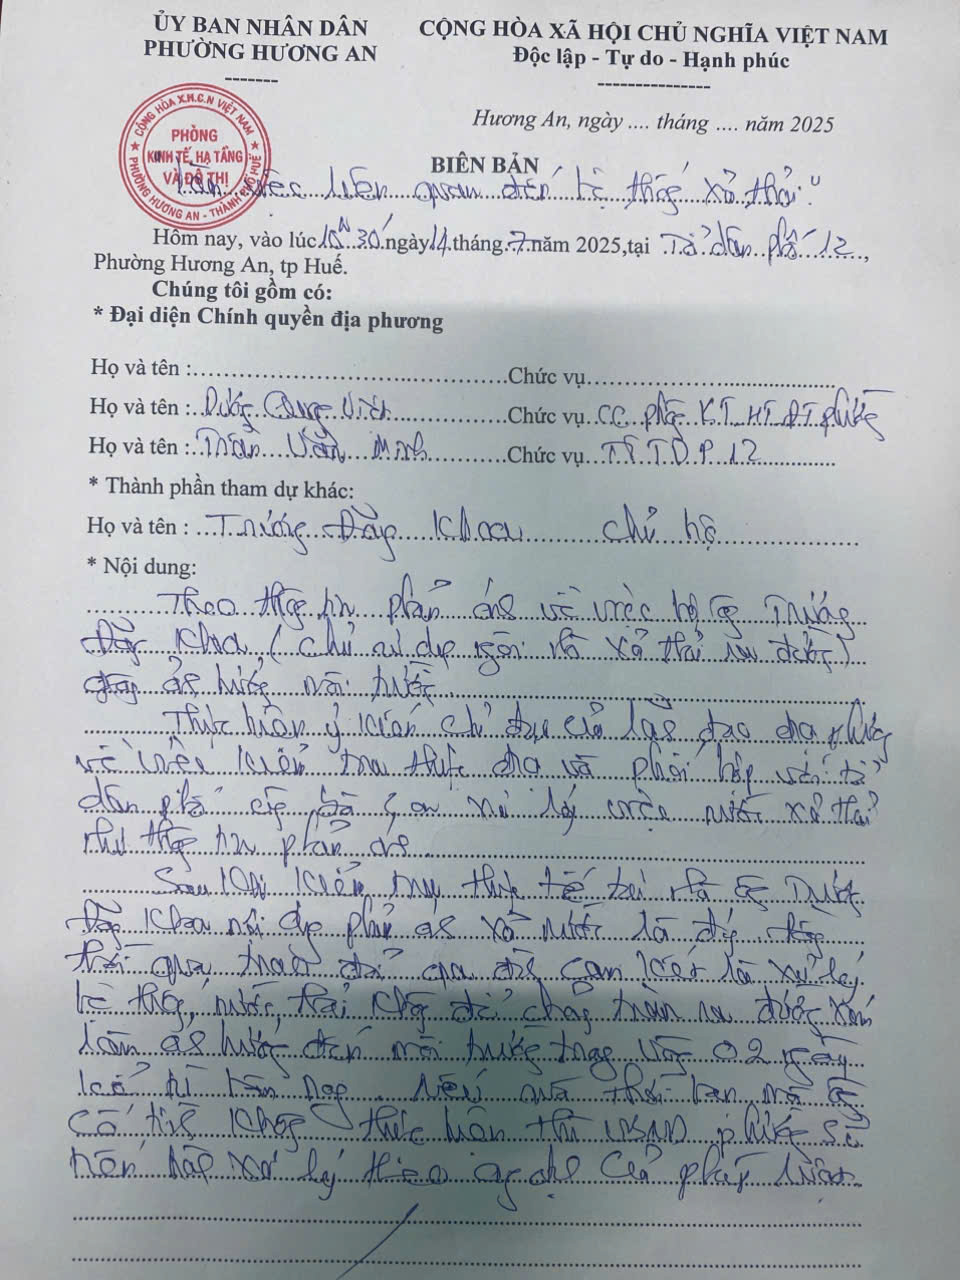 ỦY BAN NHÂN DÂN
PHƯỜNG HƯƠNG AN
-------
CỘNG HÒA XÃ HỘI CHỦ NGHĨA VIỆT NAM
Độc lập - Tự do - Hạnh phúc
---------------
Hương An, ngày .... tháng .... năm 2025
CỘNG HÒA X.H.C.N VIỆT NAM
PHÒNG
KINH TẾ, HẠ TẦNG
VÀ ĐÔ THỊ
PHƯỜNG HƯƠNG AN - THÀNH PHỐ HUẾ
BIÊN BẢN
"Làm việc liên quan đến hệ thống xả thải"
Hôm nay, vào lúc 10h 30 ngày 14 tháng 7 năm 2025, tại Tổ dân phố 12,
Phường Hương An, tp Huế.
Chúng tôi gồm có:
* Đại diện Chính quyền địa phương
Họ và tên :........ Chức vụ........
Họ và tên : Dương Quang Chức vụ CC phòng KT HT ĐT phường
Họ và tên : Trần Văn Minh Chức vụ TTTDP 12
* Thành phần tham dự khác:
Họ và tên : Trương Đăng Khoa chủ hộ
* Nội dung:
Theo thông tin phản ánh về việc hộ ông Trương
Đăng Khoa (chủ sử dụng ngôi nhà xả thải ra đường)
ảnh hưởng môi trường
Thực hiện ý kiến chỉ đạo của lãnh đạo địa phương
về việc kiểm tra thực địa và phối hợp với tổ
dân phố cùng xử lý việc nước xả thải
như thông tin phản ánh
Sau khi kiểm tra thực tế tại nhà ông Trương
Đăng Khoa nội dung phản ánh xả nước là đúng, đồng
thời qua trao đổi qua đó ông cam kết là xử lý
hệ thống nước thải không để chảy tràn ra đường xóm
làm ảnh hưởng đến môi trường trong vòng 02 ngày
kể từ hôm nay. Nếu quá thời hạn mà ông
cố tình không thực hiện thì UBND phường sẽ
tiến hành xử lý theo quy định của pháp luật